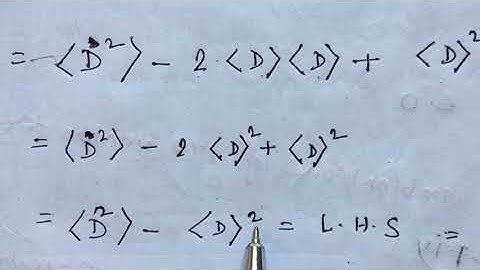 = ⟨D̂²⟩ − 2·⟨D⟩⟨D⟩ + ⟨D⟩²
= ⟨D̂²⟩ − 2 ⟨D⟩² + ⟨D⟩²
= ⟨D̂²⟩ − ⟨D⟩² = L.H.S =